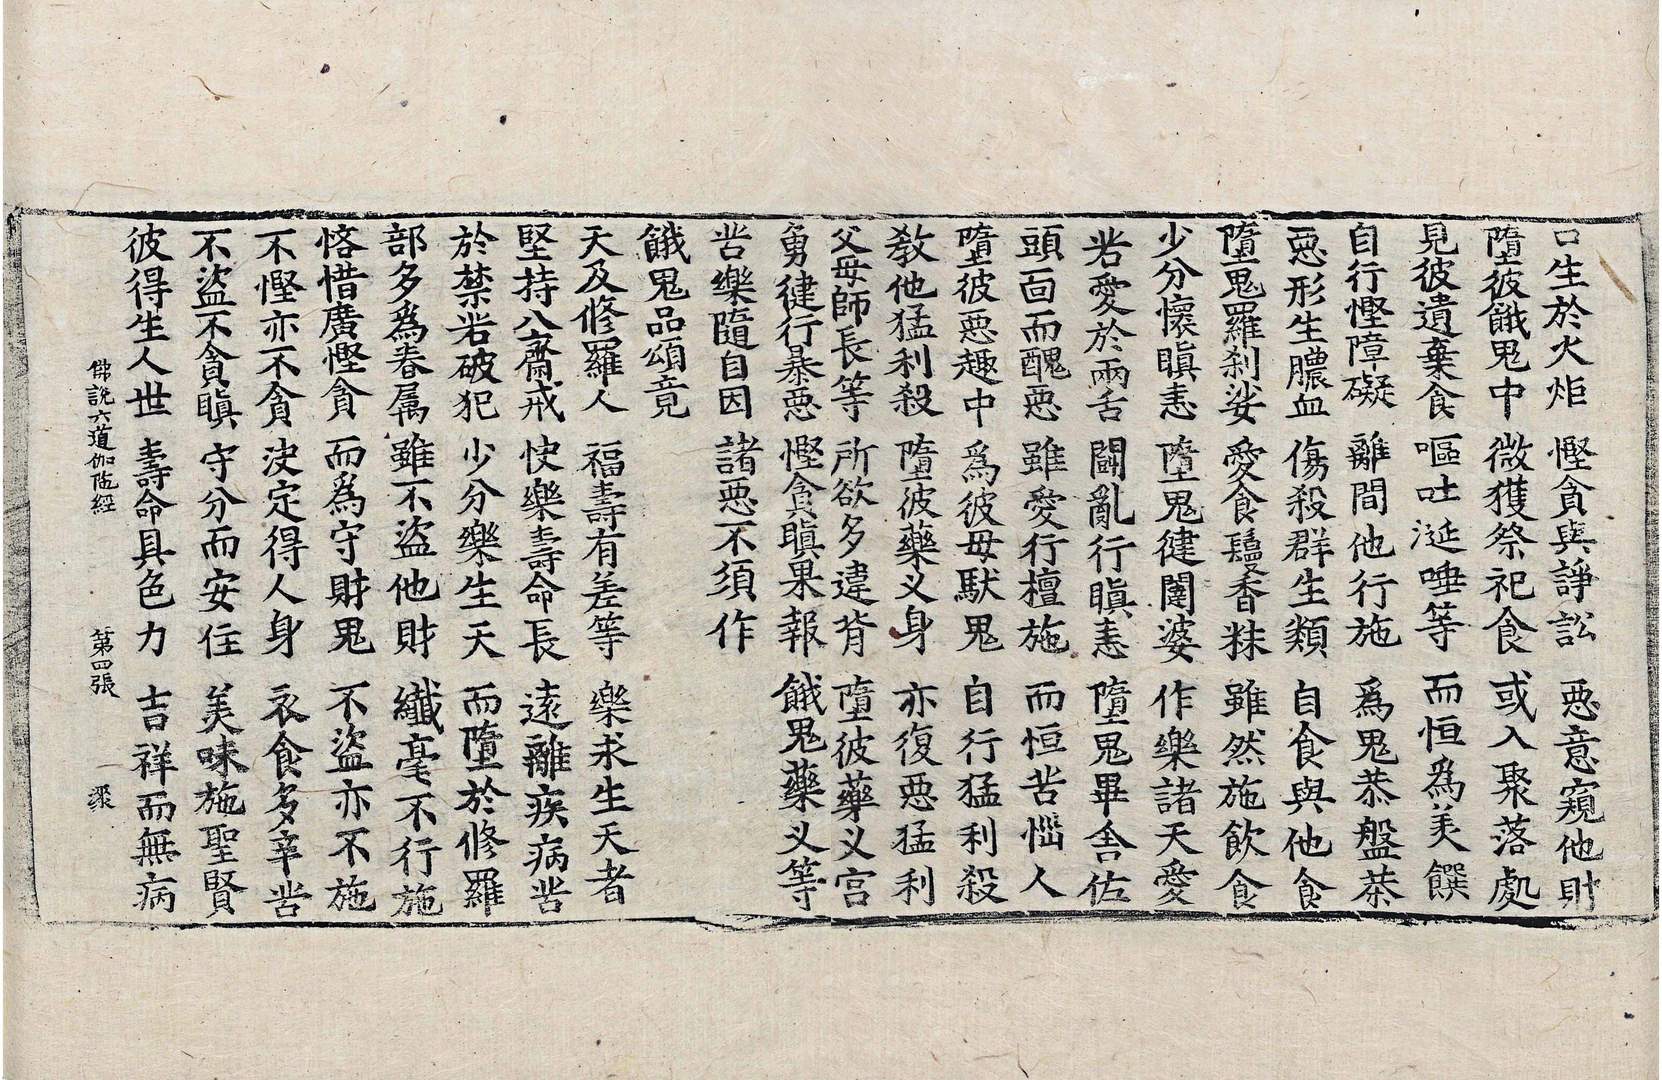 口生於火炬　慳貪與諍訟　惡意窺他財
墮彼餓鬼中　微獲祭祀食　或入聚落處
見彼遺棄食　嘔吐涎唾等　而恒爲美饌
自行慳障礙　離間他行施　爲鬼恭盤荼
惡形生膿血　傷殺群生類　自食與他食
墮鬼羅刹娑　愛食鬘香粖　雖然施飲食
少分懷瞋恚　墮鬼健闥婆　作樂諸天愛
若愛於兩舌　鬪亂行瞋恚　墮鬼畢舍佐
頭面而醜惡　雖愛行檀施　而恒苦惱人
墮彼惡趣中　爲彼毋馱鬼　自行猛利殺
教他猛利殺　墮彼藥义身　亦復惡猛利
父母師長等　所欲多違背　墮彼藥义宫
勇健行暴惡　慳貪瞋果報　餓鬼藥义等
苦樂隨自因　諸惡不須作
餓鬼品頌竟
天及修羅人　福壽有差等　樂求生天者
堅持八齋戒　快樂壽命長　遠離疾病苦
於禁若破犯　少分樂生天　而墮於修羅
部多爲眷属　雖不盜他財　纖毫不行施
悋惜廣慳貪　而爲守財鬼　不盜亦不施
不慳亦不貪　決定得人身　衣食多辛苦
不盜不貪瞋　守分而安住　美味施聖賢
彼得生人世　壽命具色力　吉祥而無病
佛說六道伽陁經　第四張　一